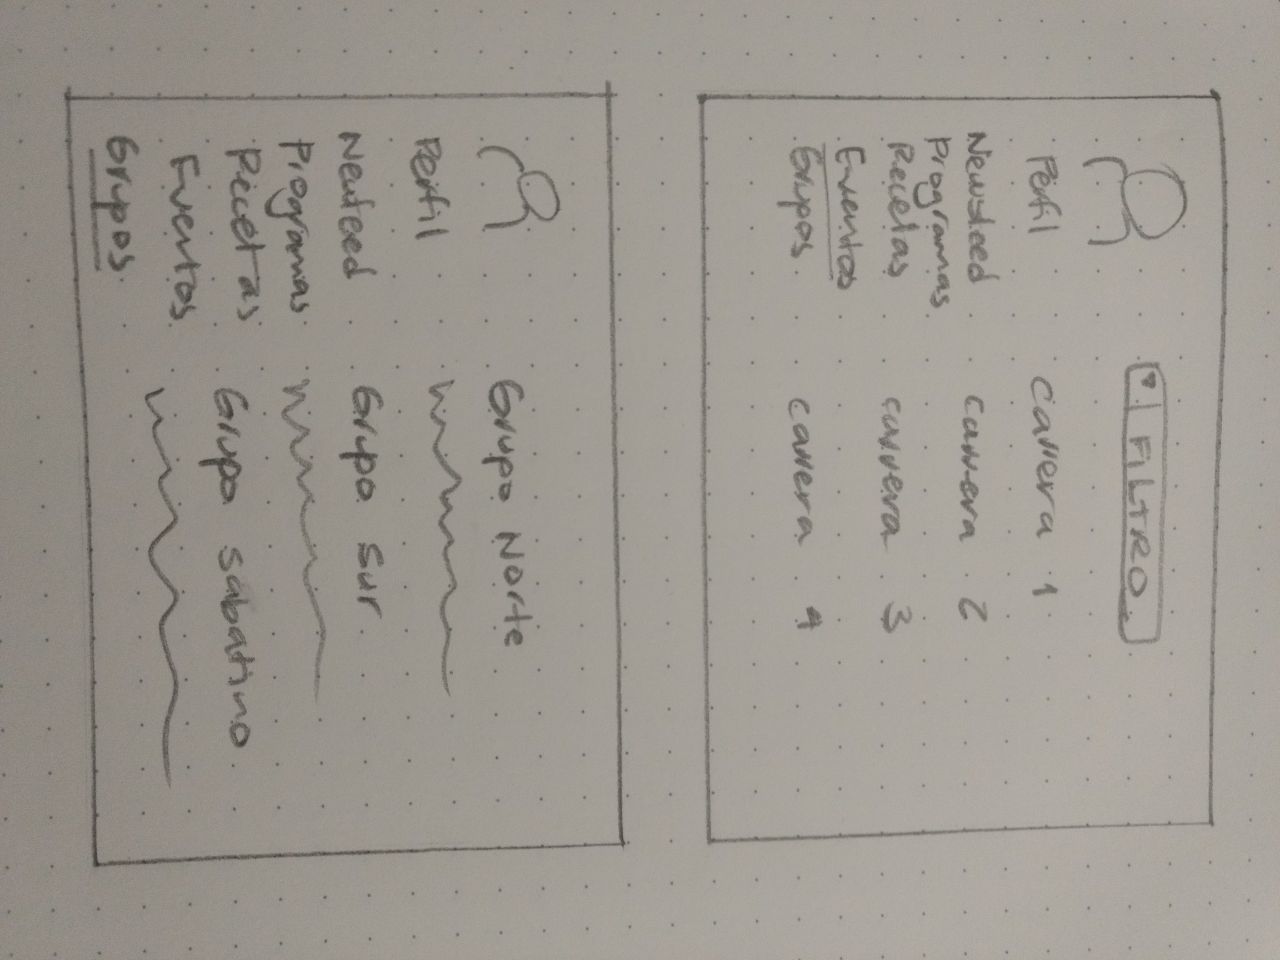 FILTRO
Perfil
Newsfeed
Programas
Recetas
Eventos
Grupos
carrera 1
carrera 2
carrera 3
carrera 4
Perfil
Newfeed
Programas
Recetas
Eventos
Grupos
Grupo Norte
Grupo Sur
Grupo sabatino